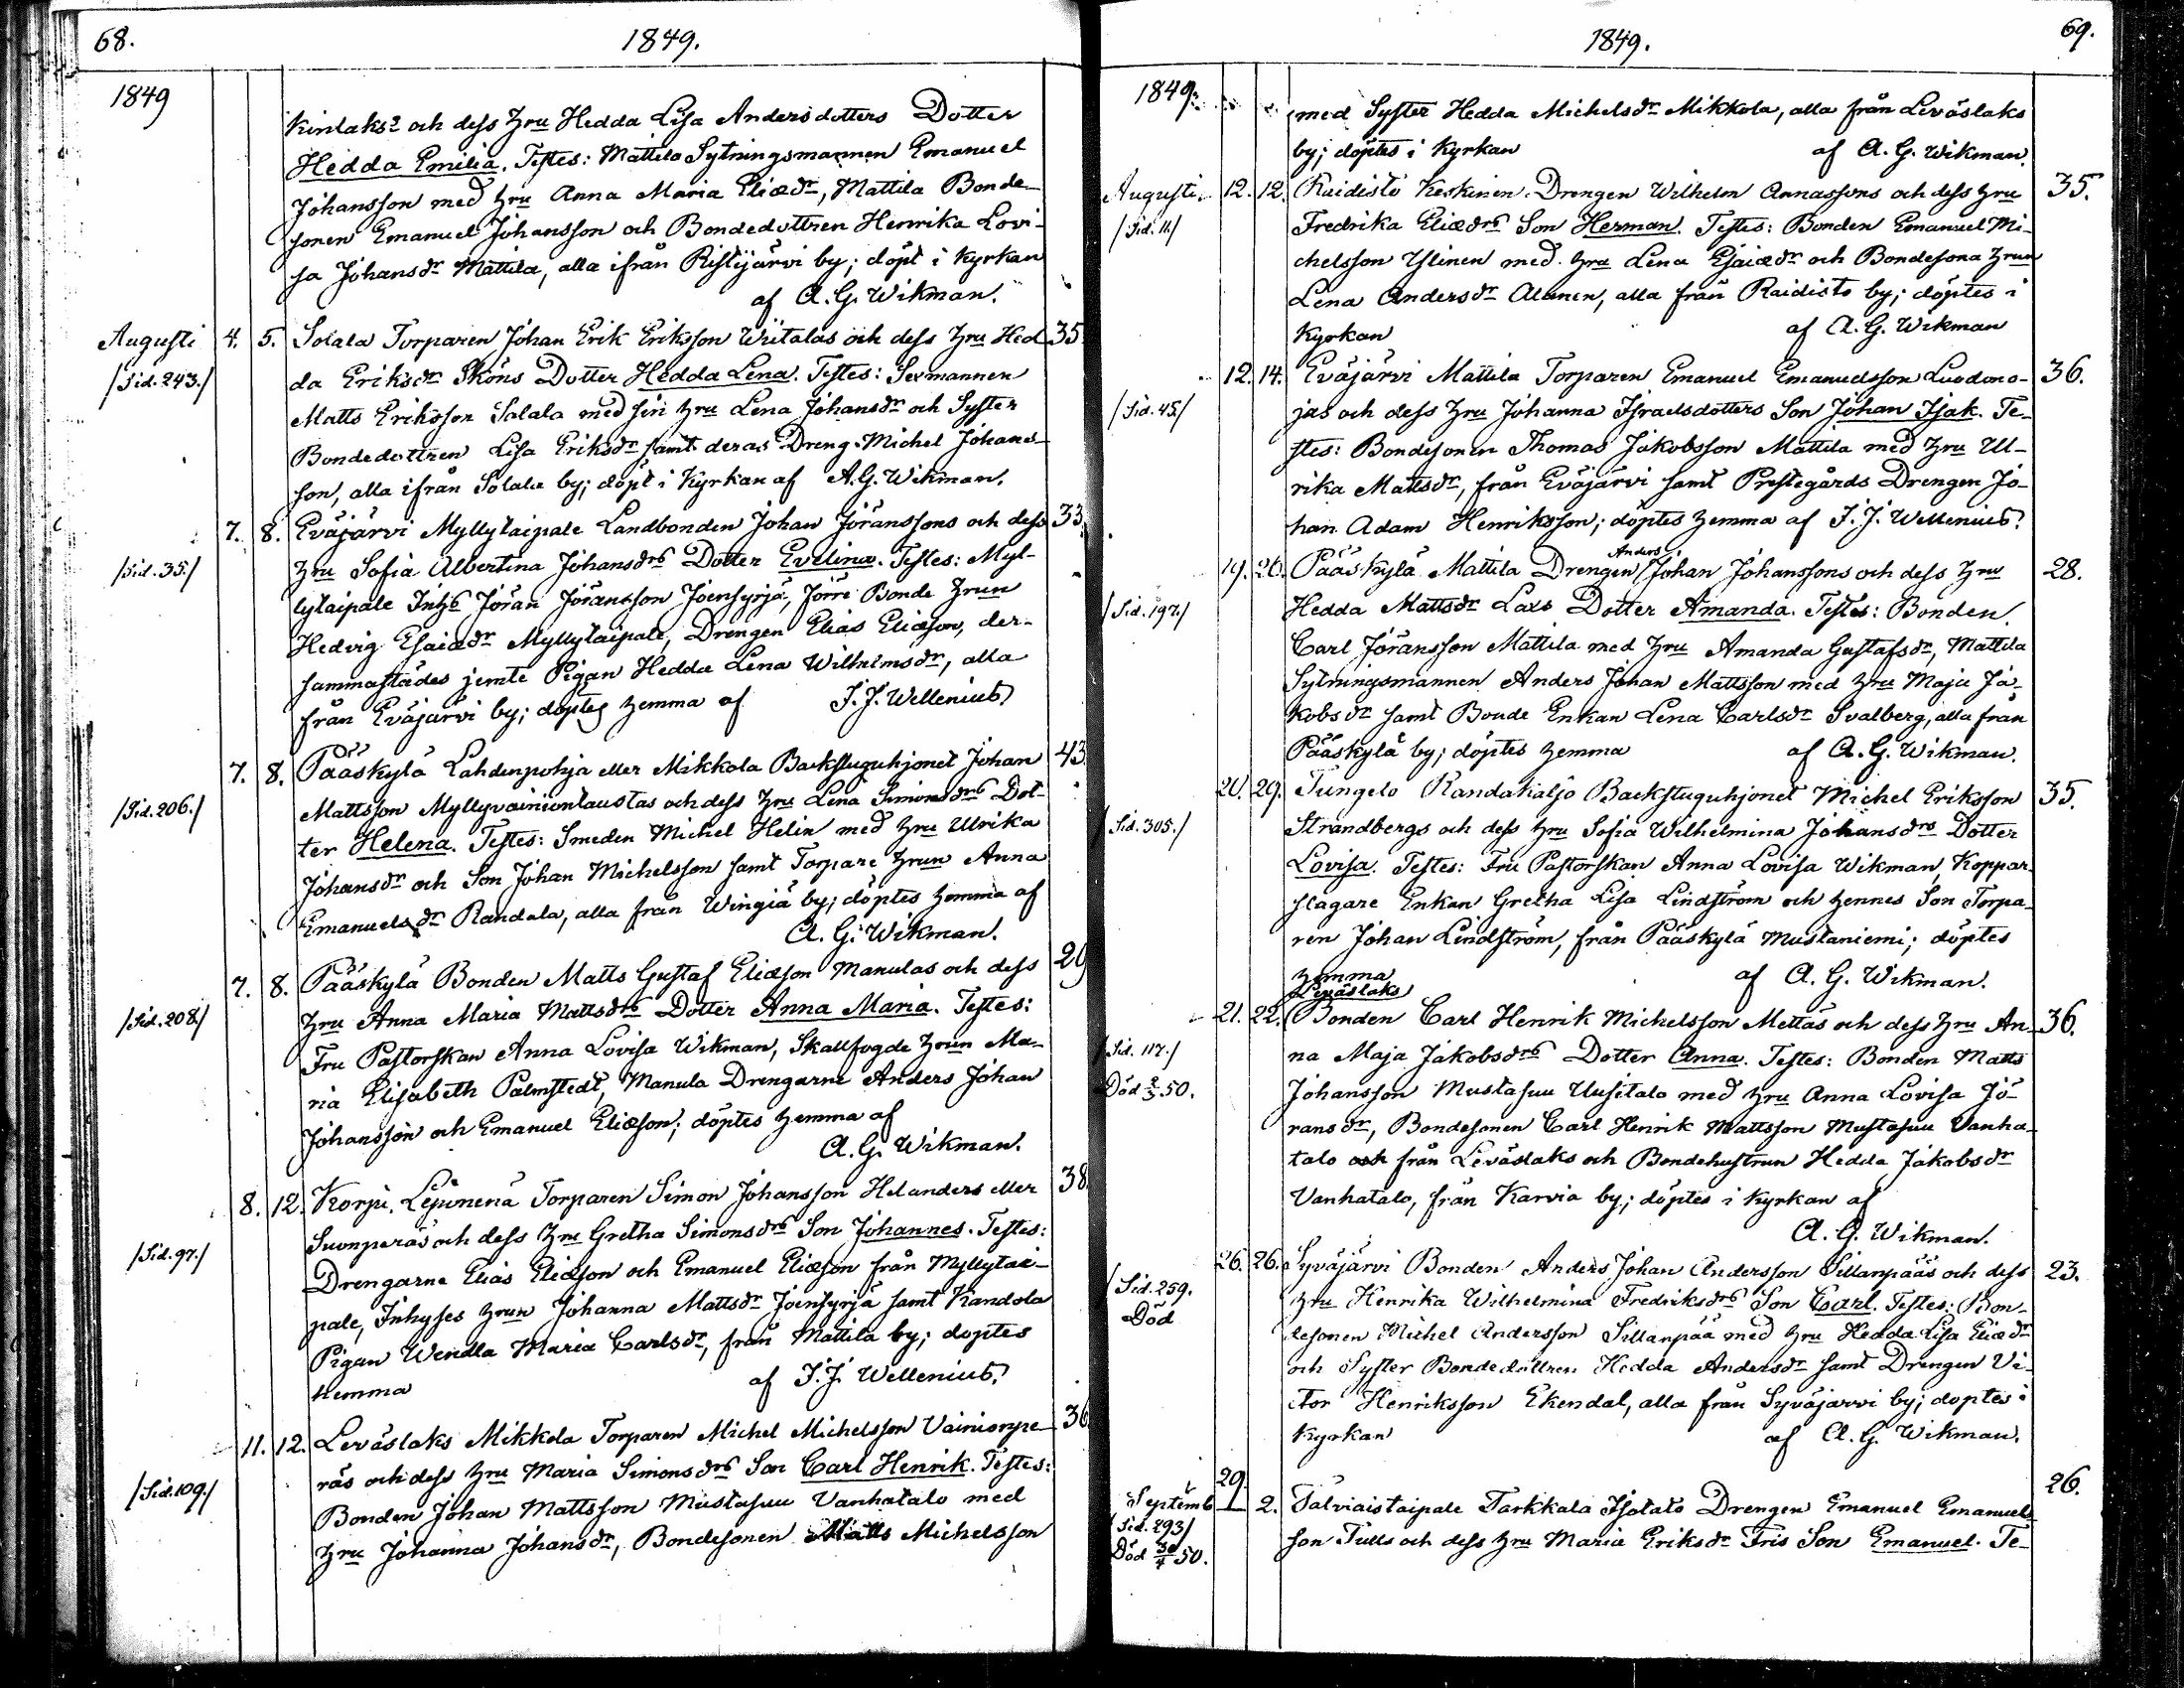 68.
1849.
1849
Kinlaks? och dess Hru Hedda Lisa Andersdotters Dotter
Hedda Emilia. Testes: Mattila Sytningsmannen Emanuel
Johansson med Hru Anna Maria Eliædr, Mattila Bonde-
sonen Emanuel Johansson och Bondedottren Henrika Lovi-
sa Johansdr Mattila, alla ifrån Ristijärvi by; döpt i Kyrkan
af A. G. Wikman.
Augusti 4. 5. Solala Torparen Johan Erik Eriksson Wiitalas och dess Hru Hed 35
/Sid. 243./ da Eriksdr Sköns Dotter Hedda Lena. Testes: Sexmannen
Matts Eriksson Salala med sin Hru Lena Johansdr och Syster
Bondedottren Lisa Eriksdr samt deras Dreng Michel Johans-
son, alla ifrån Solala by; döpt i Kyrkan af A. G. Wikman.
7. 8. Eväjärvi Myllytaipale Landbonden Johan Jöranssons och dess 33.
/Sid. 35./ Hru Sofia Albertina Johansdrs Dotter Evelina. Testes: Myl-
lytaipale Inhs Jöran Jöransson Joensyrjä, Jörri Bonde Hrun
Hedvig Esaiædr Myllytaipale, Drengen Elias Eliæson, der-
sammastädes jemte Pigan Hedda Lena Wilhelmsdr, alla
från Eväjärvi by; döptes hemma af J. J. Wellenius.
7. 8. Pääskylä Lahdenpohja eller Mikkola Backstuguhjonet Johan 43
/Sid. 206./ Mattsson Myllyvainiontaustas och dess Hru Lena Simonsdrs Dot-
ter Helena. Testes: Smeden Michel Helin med Hru Ulrika
Johansdr och Son Johan Michelsson samt Torpare Hrun Anna
Emanuelsdr Randala, alla från Wingiä by; döptes hemma af
A. G. Wikman.
7. 8. Pääskylä Bonden Matts Gustaf Eliæson Manulas och dess 29
/Sid. 208./ Hru Anna Maria Mattsdrs Dotter Anna Maria. Testes:
Fru Pastorskan Anna Lovisa Wikman, Skallfogde Hrun Ma-
ria Elisabeth Palmstedt, Manula Drengarne Anders Johan
Johansson och Emanuel Eliæson; döptes hemma af
A. G. Wikman.
8. 12. Korpi, Lepimenä Torparen Simon Johansson Helanders eller 38.
/Sid. 97./ Suonperäs och dess Hru Gretha Simonsdrs Son Johannes. Testes:
Drengarne Elias Eliæson och Emanuel Eliæson från Myllytai-
pale, Inhyses Hrun Johanna Mattsdr Joensyrjä samt Kandola
Pigan Wendla Maria Carlsdr, från Mattila by; döptes
hemma af J. J. Wellenius.
11. 12. Leväslaks Mikkola Torparen Michel Michelsson Vainionpe- 36
/Sid. 109./ räs och dess Hru Maria Simonsdrs Son Carl Henrik. Testes:
Bonden Johan Mattsson Mustasuu Vanhatalo med
Hru Johanna Johansdr, Bondesonen Matts Michelsson
1849.
69.
1849. med Syster Hedda Michelsdr Mikkola, alla från Leväslaks
by; döptes i Kyrkan af A. G. Wikman.
Augusti 12. 12. Raidisto Keskinen Drengen Wilhelm Annassons och dess Hru 35.
/Sid. 11./ Fredrika Eliædrs Son Herman. Testes: Bonden Emanuel Mi-
chelsson Ylinen med Hru Lena Esaiædr och Bondesona Hrun
Lena Andersdr Alanen, alla från Raidisto by; döptes i
Kyrkan af A. G. Wikman
12. 14. Eväjärvi Mattila Torparen Emanuel Emanuelsson Luodono- 36.
/Sid. 45./ jas och dess Hru Johanna Israelsdotters Son Johan Isak. Te-
stes: Bondesonen Thomas Jakobsson Mattila med Hru Ul-
rika Mattsdr, från Eväjärvi samt Prestegårds Drengen Jo-
han Adam Henriksson; döptes hemma af J. J. Wellenius.
19. 26. Pääskylä Mattila Drengen Anders Johan Johanssons och dess Hru 28.
/Sid. 197./ Hedda Mattsdr Laxs Dotter Amanda. Testes: Bonden
Carl Jöransson Mattila med Hru Amanda Gustafsdr, Mattila
Sytningsmannen Anders Johan Mattsson med Hru Maja Ja-
kobsdr samt Bonde Enkan Lena Carlsdr Svalberg, alla från
Pääskylä by; döptes hemma af A. G. Wikman.
20. 29. Tungelo Randakaljo Backstuguhjonet Michel Eriksson 35.
/Sid. 305./ Strandbergs och dess Hru Sofia Wilhelmina Johansdrs Dotter
Lovisa. Testes: Fru Pastorskan Anna Lovisa Wikman, Koppar-
slagare Enkan Gretha Lisa Lindström och hennes Son Torpa-
ren Johan Lindström, från Pääskylä Mustaniemi; döptes
hemma af A. G. Wikman.
Leväslaks
21. 22. Bonden Carl Henrik Michelsson Mettäs och dess Hru An- 36.
/Sid. 117./ na Maja Jakobsdrs Dotter Anna. Testes: Bonden Matts
Död 2/3 50. Johansson Mustasuu Uusitalo med Hru Anna Lovisa Jö-
ransdr, Bondesonen Carl Henrik Mattsson Mustasuu Vanha-
talo och från Leväslaks och Bondehustrun Hedda Jakobsdr
Vanhatalo, från Karvia by; döptes i Kyrkan af
A. G. Wikman.
26. 26. Syväjärvi Bonden Anders Johan Andersson Sillanpääs och dess 23.
/Sid. 259. Hru Henrika Wilhelmina Fredriksdrs Son Carl. Testes: Bon-
Död desonen Michel Andersson Sillanpää med Hru Hedda Lisa Eliædr
och Syster Bondedottren Hedda Andersdr samt Drengen Vi-
ctor Henriksson Ekendal, alla från Syväjärvi by; döptes i
Kyrkan af A. G. Wikman.
29.
Septemb 2. Talviaistaipale Tarkkala Isotalo Drengen Emanuel Emanuels- 26.
/Sid. 293/ son Tulls och dess Hru Maria Eriksdr Fris Son Emanuel. Te-
Död 30/4 50.